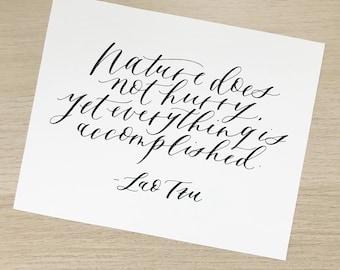 Nature does
not hurry,
yet everything is
accomplished.
-Lao Tzu